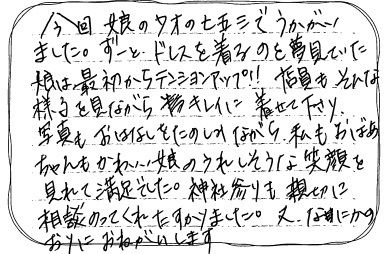 今回娘の七五三でうかがい
ました。ずーと、ドレスを着るのを夢見ていた
娘は最初からテンションアップ!! 店員も そんな
様子を見ながら キレイに 着せて下さり、
写真も おはなしをたのしみながら、私もおばあ
ちゃんもかわいい娘のうれしそうな笑顔を
見れて満足でした。神社参りも 親切に
相談のってくれたすかりました。又、なにかの
おりに おねがいします